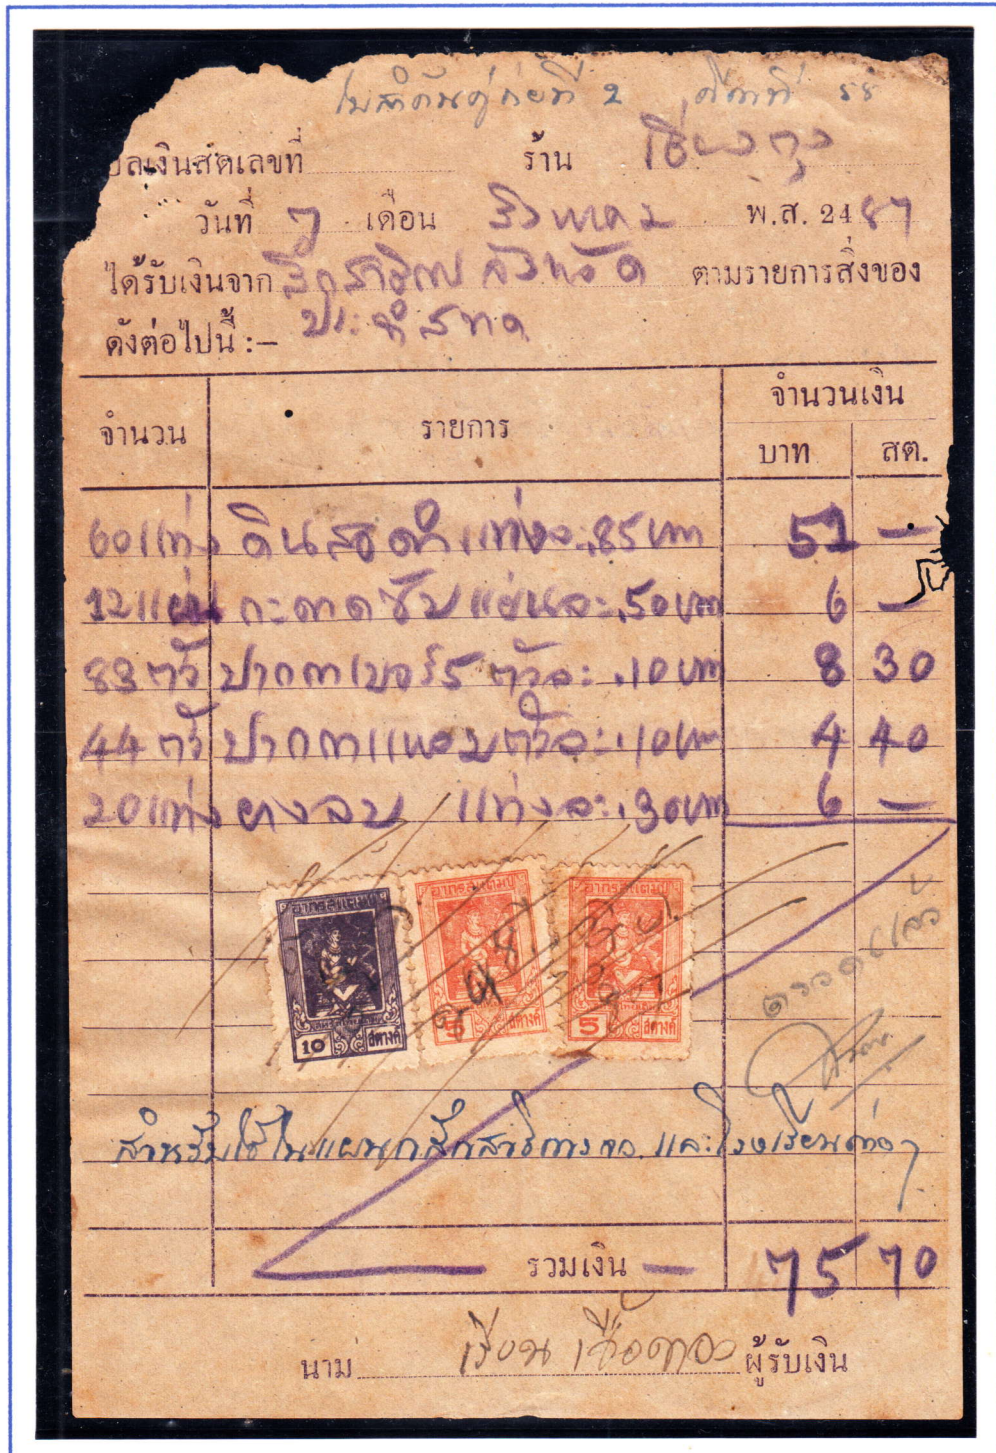 ใบสำคันคู่จ่ายที่ 2 ฎีกาที่ 58
บิลเงินสดเลขที่ ร้าน
วันที่ 7 เดือน สิงหาคม พ.ส. 2487
ได้รับเงินจาก สึกสาธิการ จังหวัด ตามรายการสิ่งของ
ดังต่อไปนี้ :–
จำนวน รายการ จำนวนเงิน
บาท สต.
60 แท่ง ดินสอดำ แท่งละ .85 บาท 51 –
12 แผ่น กะดาดซับ แผ่นละ .50 บาท 6 –
83 ตัว ปากกาเบอร์ 5 ตัวละ .10 บาท 8 30
44 ตัว ปากกาแหลม ตัวละ .10 บาท 4 40
20 แท่ง ยางลบ แท่งละ .30 บาท 6 –
อากรสแตมป์ อากรสแตมป์ อากรสแตมป์
10 สตางค์ 5 สตางค์ 5 สตางค์
ตรวดแล้ว
สำหรับใช้ในแผนกสึกสาธิการ จว. และโรงเรียนต่างๆ
รวมเงิน – 75 70
นาม ผู้รับเงิน